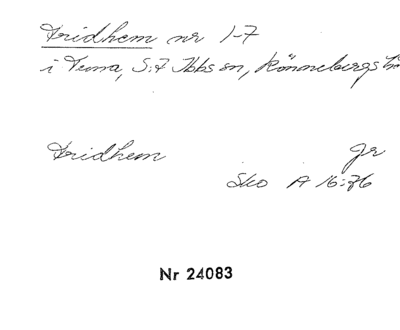 Fridhem nr 1-7
i Tuna, S:t Ibbs sn, Rönnebergs
Fridhem gr
Sko A 16:36
Nr 24083